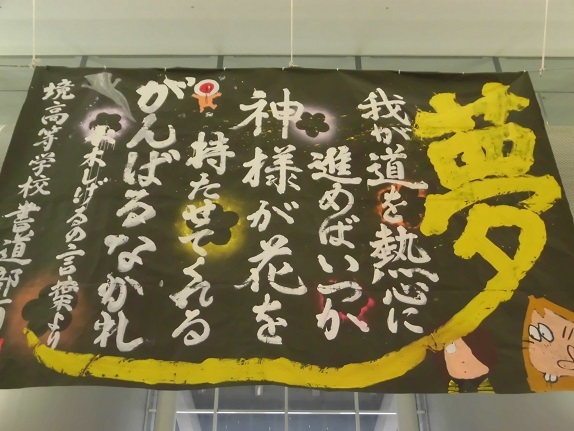 夢
我が道を熱心に
進めばいつか
神様が花を
持たせてくれる
がんばるなかれ
水木しげるの言葉より
境高等学校 書道部